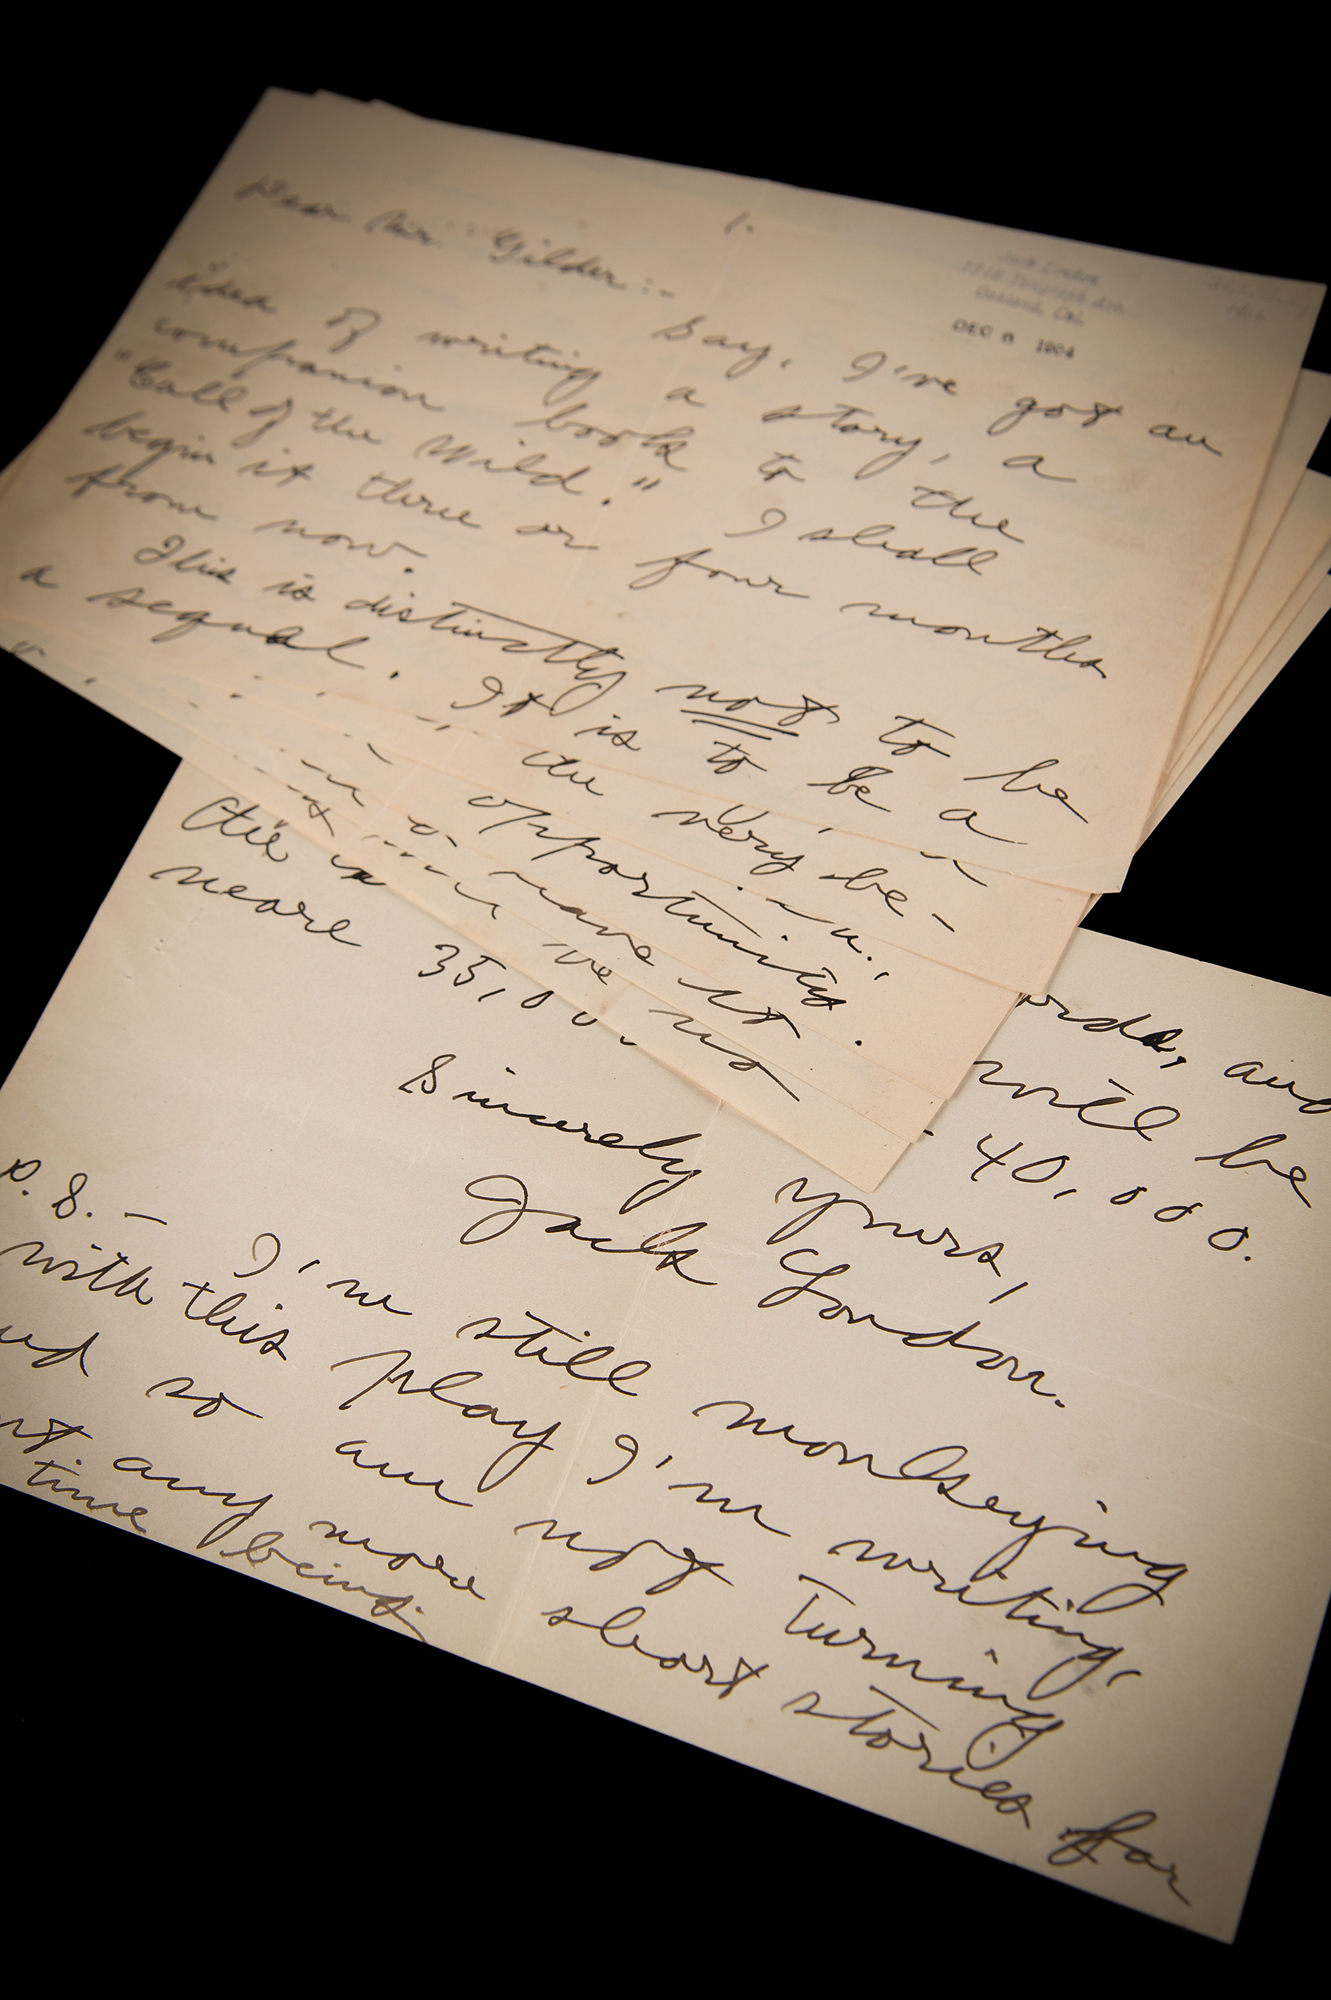 1.
Jack London
1216 Telegraph Ave.
Oakland, Cal.
DEC 6 1904
Dear Mr. Gilder:-
Say, I've got an
idea of writing a story, a
companion book to the
"Call of the Wild." I shall
begin it three or four months
from now.
This is distinctly not to be
a sequal. It is to be a
the very be-
opportunity.
have
no
words, and
will be
neare 35,00 40,000.
Sincerely yours,
Jack London.
P.S. - I'm still monkeying
with this play I'm writing,
and so am not turning
out any more short stories for
time being.